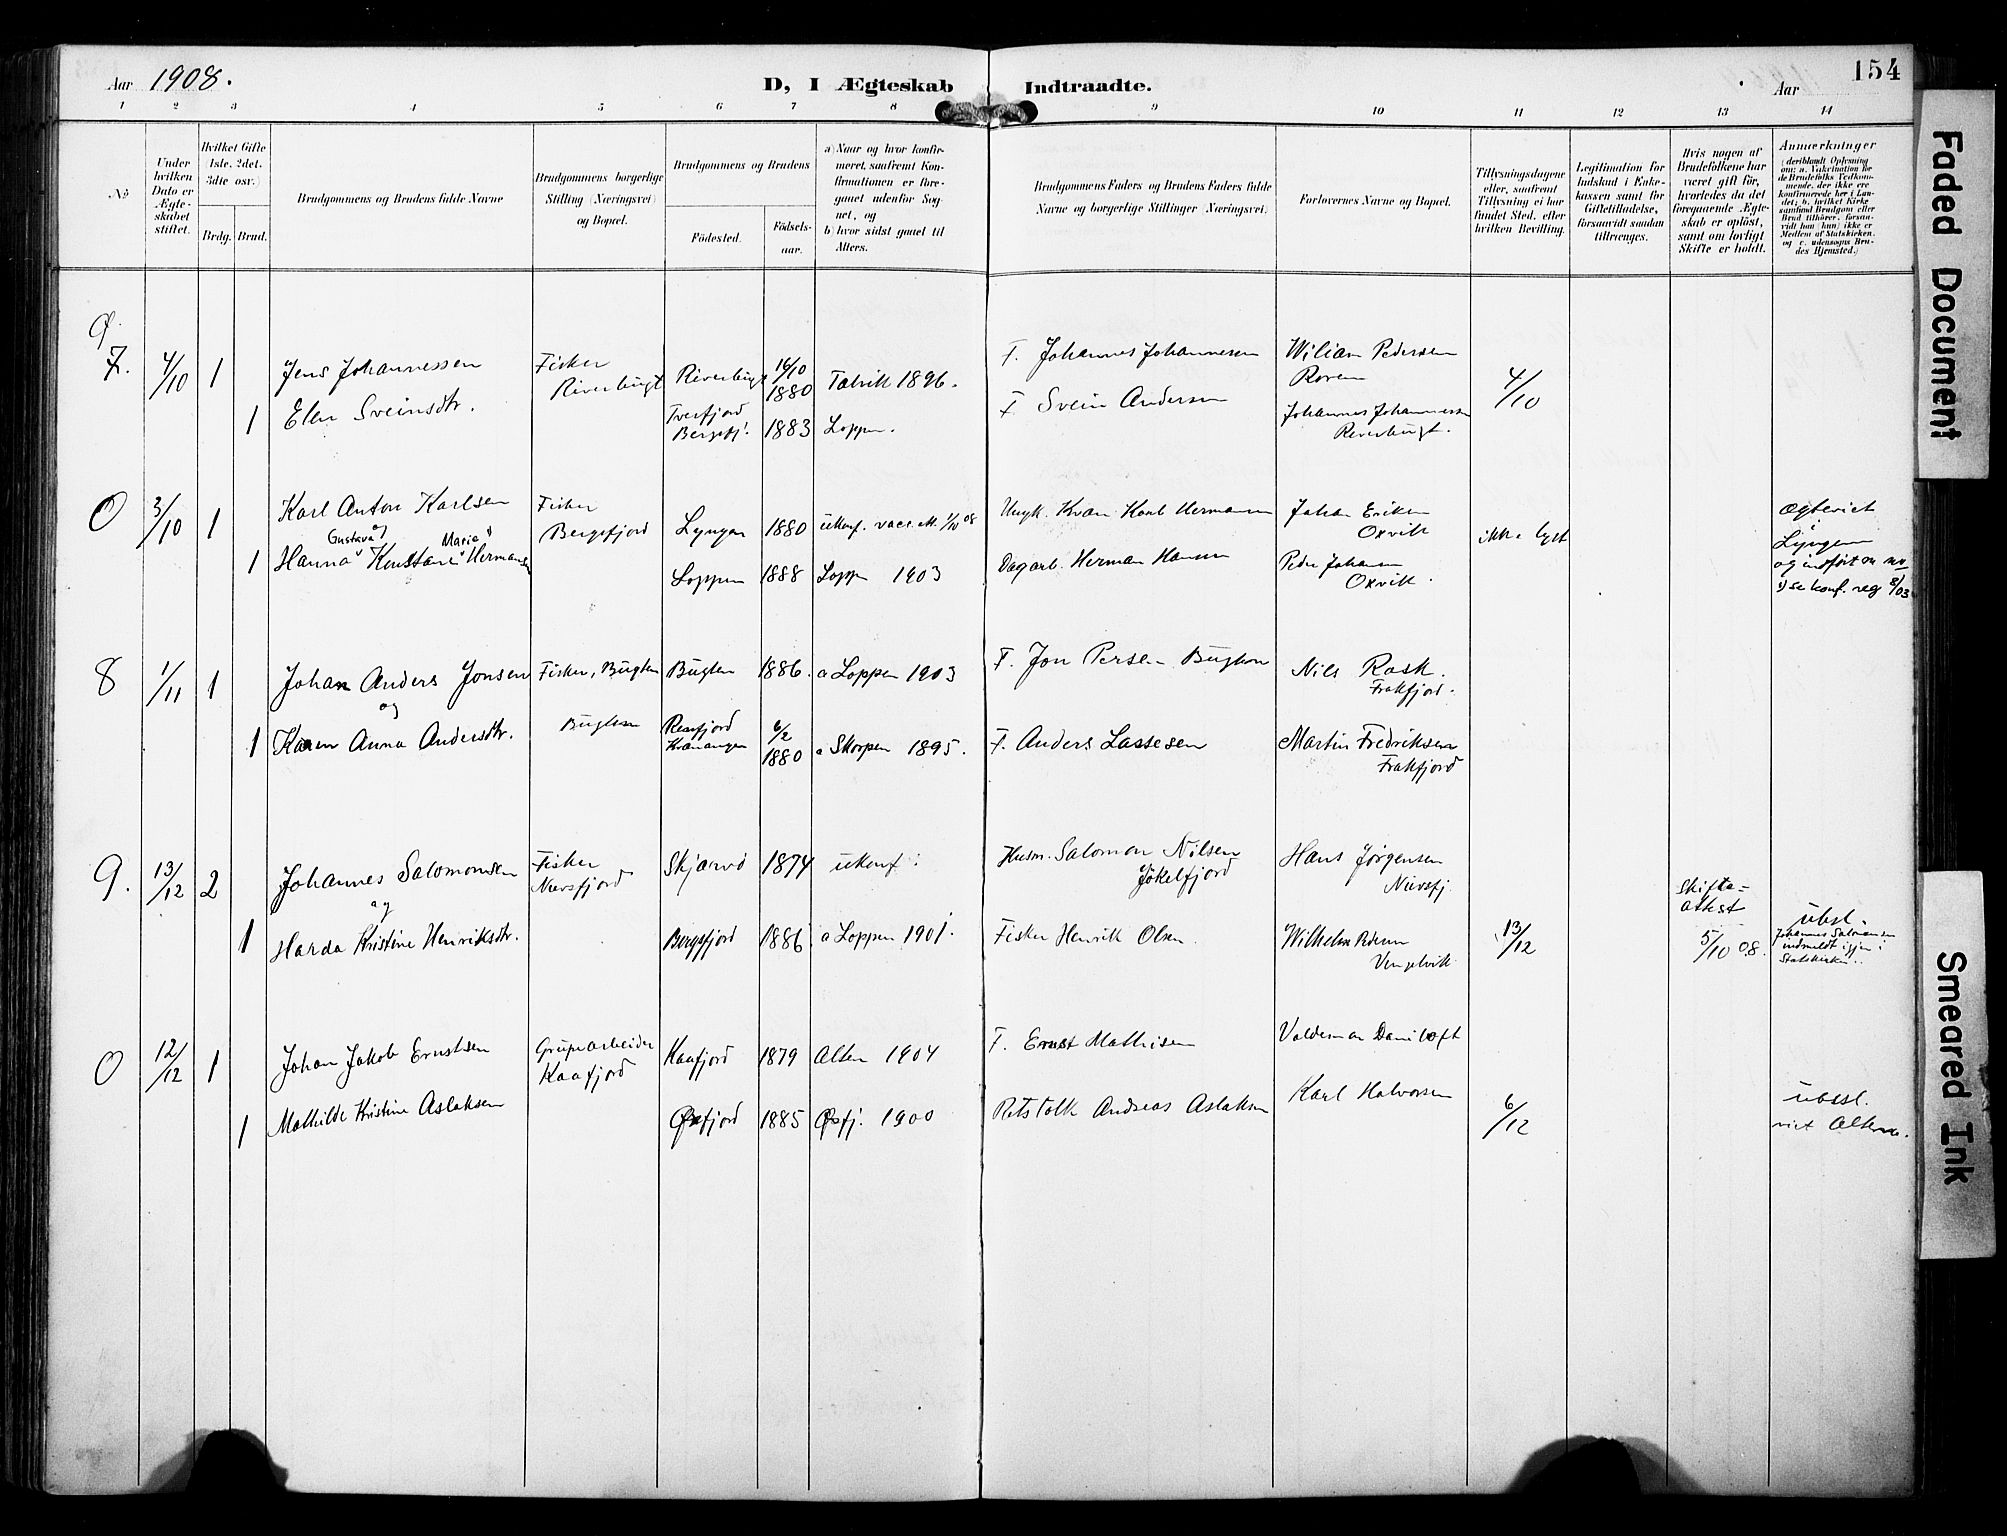 Aar 1908.
D, I Ægteskab Indtraadte.
Aar
154
1 2 3 4 5 6 7 8 9 10 11 12 13 14
No
Under hvilken Dato er Ægteskabet stiftet.
Hvilket Gifte (1ste, 2det, 3die osv.)
Brdg. Brud.
Brudgommens og Brudens fulde Navne
Brudgommens borgerlige Stilling (Næringsvei) og Bopæl.
Brudgommens og Brudens
Fødested. Fødselsaar.
a) Naar og hvor konfirmeret, saafremt Konfirmationen er foregaaet udenfor Sognet, og
b) hvor sidst gaaet til Alters.
Brudgommens Faders og Brudens Faders fulde Navne og borgerlige Stillinger (Næringsvei).
Forlovernes Navne og Bopæl.
Tillysningsdagene eller, saafremt Tillysning ei har fundet Sted, efter hvilken Bevilling.
Legitimation for Indskud i Enkekassen samt for Giftetilladelse, forsaavidt saadan tiltrænges.
Hvis nogen af Brudefolkene har været gift før, hvorledes da det foregaaende Ægteskab er opløst, samt om lovligt Skifte er holdt.
Anmærkninger
7. 4/10 1 Jens Johannessen Fisker Riverbugt Riverbugt 16/10 1880 Talvik 1896. F. Johannes Johannesen Wiliam Pedersen
1 Elen Sveinsdtr. Tverfjord Bergsfj. 1883 Loppen. F Svein Andersen Johannes Johannessen Riverbugt. 4/10
0 3/10 1 Karl Anton Karlsen Fisker Bergsfjord Lyngen 1880 ukonf. vacc. att. 1/10 08 Ungk. Kvæn Karl Hermansen Johan Eriksen Oxvik ikke lyst
og
Gustava Marie
1 Hanna Konstanse Hermansen Loppen 1888 Loppen 1903 Dagarb. Herman Hansen Peder Johansen Oxvik.
Ægteviet i Lyngen og indført
se konf. reg 8/03
8 1/11 1 Johan Anders Jonsen Fisker, Bugten Bugten 1886. a Loppen 1903 F. Jon Persen Bugten Nils Rask. Frakfjord.
og
1 Karen Anna Andersdtr. Bugten Reinfjord Kvænangen 6/2 1880 a Skorpen 1895. F. Anders Lassesen Martin Fredriksen Frakfjord
9. 13/12 2 Johannes Salomonsen Fisker Nuvsfjord Skjærvø 1874 ukonf. Husm. Salomon Nilsen Jøkelfjord Hans Jørgensen Nuvsfj.
og
1 Harda Kristine Henriksdtr. Bergsfjord 1886 a Loppen 1901. Fisker Henrik Olsen. Wilhelm Pedersen 13/12
Skifteattest 5/10 08.
ubesl. Johannes Salomonsen indmeldt igjen i Statskirken.
0 12/12 1 Johan Jakob Ernstsen Grubearbeider Kaafjord Kaafjord 1879 Alten 1904 F. Ernst Mathisen Valdemar Daniloft
1 Mathilde Kristine Aslaksen Øxfjord 1885 Øxfj. 1900 Retstolk Andreas Aslaksen Karl Halvorsen 6/12
ubesl. viet Alten.
Faded Document
Smeared Ink